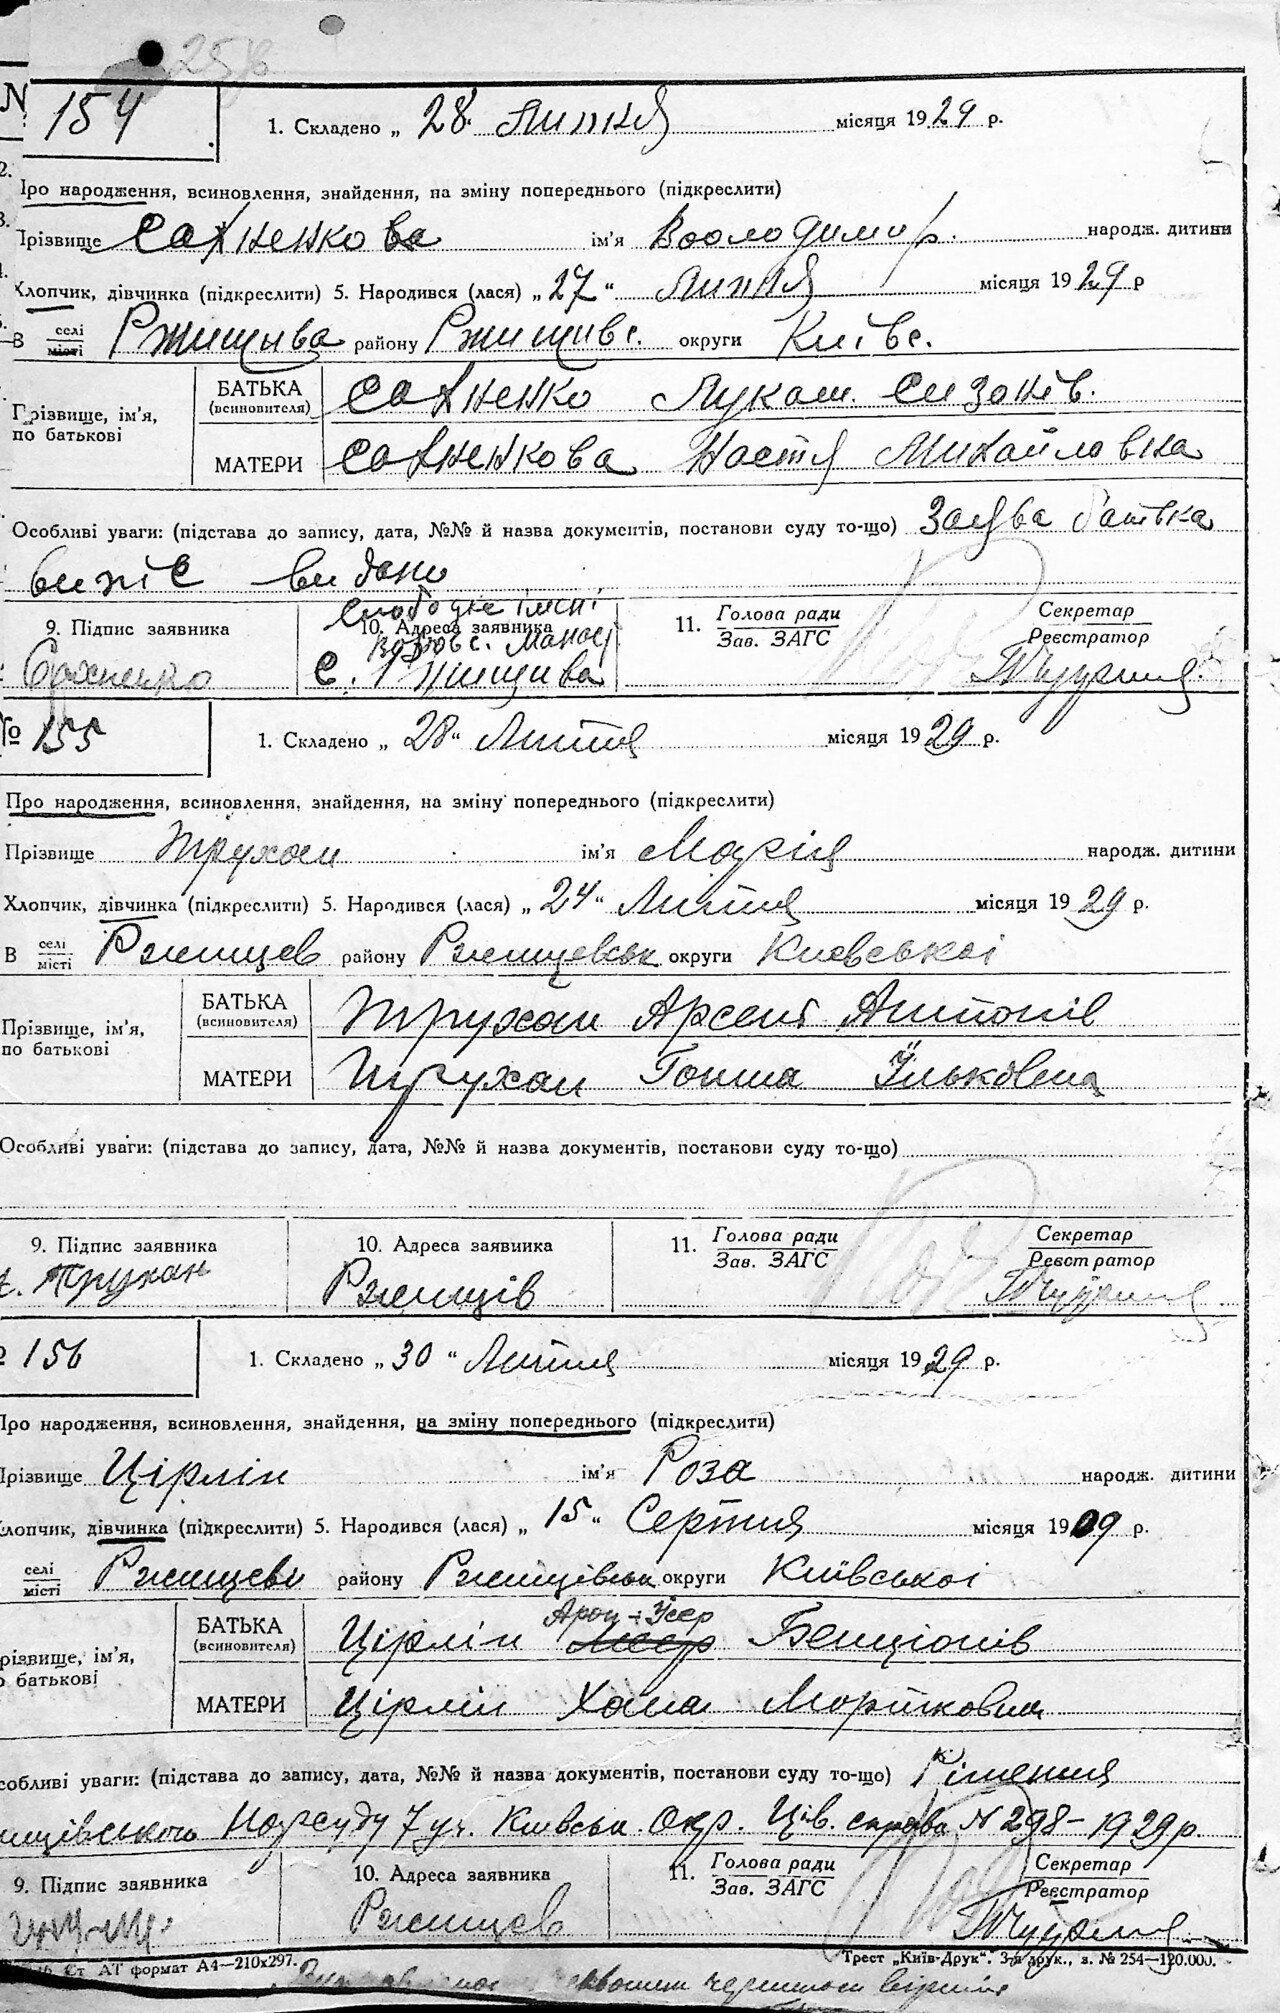 25
N 154 1. Складено „ 28 Липня місяця 1929 р.
2.
Про народження, всиновлення, знайдення, на зміну попереднього (підкреслити)
3.
Прізвище Сахненкова ім'я Вооло димир. народж. дитини
Хлопчик, дівчинка (підкреслити) 5. Народився (лася) „ 27 “ Липня місяця 1929 р
В селі місті Ржищыва району Ржищивс. округи Київс.
Прізвище, ім'я, по батькові
БАТЬКА (всиновителя) Сахненко Лукаш Сизонів.
МАТЕРИ Сахненкова Настя Михайловна
Особливі уваги: (підстава до запису, дата, №№ й назва документів, постанови суду то-що) Заява батька
випіс видано
9. Підпис заявника 10. Адреса заявника 11. Голова ради Зав. ЗАГС Секретар Реєстратор
Сахненко с. Ржищива
№ 155 1. Складено „ 28 “ Липня місяця 1929 р.
Про народження, всиновлення, знайдення, на зміну попереднього (підкреслити)
Прізвище Трухан ім'я Марія народж. дитини
Хлопчик, дівчинка (підкреслити) 5. Народився (лася) „ 24 “ Липня місяця 1929 р.
В селі місті Ржищев району Ржищевськ округи Киевської
Прізвище, ім'я, по батькові
БАТЬКА (всиновителя) Трухан Арсент Антонів
МАТЕРИ Трухан Ганна Ільківна
Особливі уваги: (підстава до запису, дата, №№ й назва документів, постанови суду то-що)
9. Підпис заявника 10. Адреса заявника 11. Голова ради Зав. ЗАГС Секретар Реєстратор
Трухан Ржищів
156 1. Складено „ 30 “ Липня місяця 1929 р.
Про народження, всиновлення, знайдення, на зміну попереднього (підкреслити)
Прізвище Цірлін ім'я Роза народж. дитини
Хлопчик, дівчинка (підкреслити) 5. Народився (лася) „ 15 “ Серпня місяця 1909 р.
селі місті Ржищеви району Ржищівськ округи Київської
Прізвище, ім'я, по батькові
Арон - Усер
БАТЬКА (всиновителя) Цірлін Бенціонів
МАТЕРИ Цірлін Хана Мортковна
Особливі уваги: (підстава до запису, дата, №№ й назва документів, постанови суду то-що) Рішення
ищівського Нарсуду 7 уч. Київськ. Окр. Ців. справа N 298 - 1929 р.
9. Підпис заявника 10. Адреса заявника 11. Голова ради Зав. ЗАГС Секретар Реєстратор
Ржищев
Ст. АТ формат А4—210х297. Трест „Київ-Друк“. 3-я друк., з. № 254—120.000.